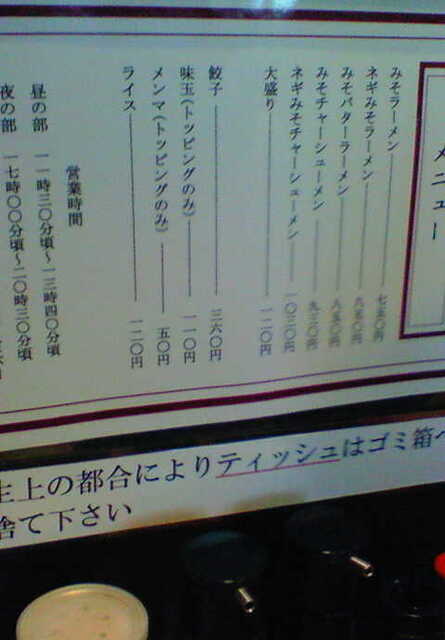 メニュー
みそラーメン 七五〇円
ネギみそラーメン 九五〇円
みそバターラーメン 八五〇円
みそチャーシューメン 九三〇円
ネギみそチャーシューメン 一〇三〇円
大盛り 一二〇円
餃子 三六〇円
味玉(トッピングのみ) 一一〇円
メンマ(トッピングのみ) 五〇円
ライス 一二〇円
営業時間
昼の部 一一時三〇分頃〜一三時四〇分頃
夜の部 一七時〇〇分頃〜二〇時三〇分頃
上の都合によりティッシュはゴミ箱へ
捨て下さい